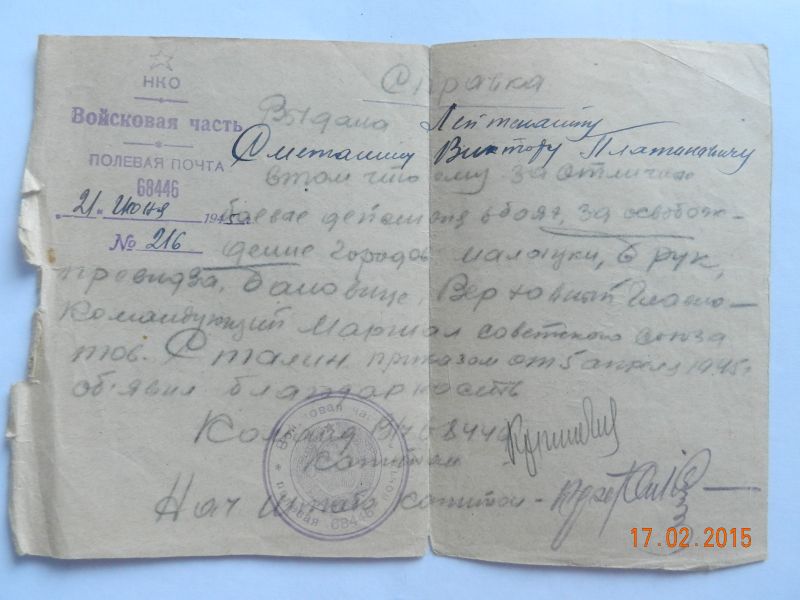 НКО
Войсковая часть
ПОЛЕВАЯ ПОЧТА
68446
21. Июня 1945 г.
№ 216
Справка
Выдана Лейтенанту
Сметанину Виктору Платанавичу
втом что ему за отлично
боевые действия вбоях, за освобож-
дение городов малацки, Брук,
превидза, Бановице, Верховный Главно-
Командующий Маршал советского союза
тов. Сталин приказом от 5 апреля 1945 г
об'явил благодарность
Команд В/ч 68446
Капитан
Нач Штаба капитан -
Войсковая часть
полевая почта 68446
17.02.2015